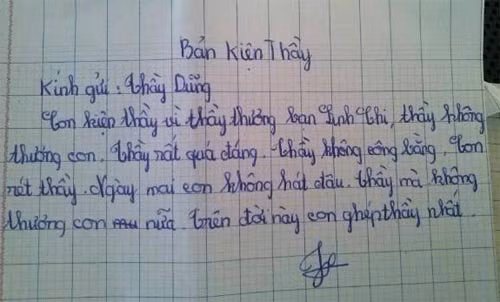 Bản Kiện Thầy
Kính gửi: thầy Dũng
Con kiện thầy vì thầy thương bạn Linh Chi, thầy không
thương con. Thầy rất quá đáng. Thầy không công bằng, con
rét thầy. Ngày mai con không hát đâu. Thầy mà không
thương con nữa. Trên đời này con ghép thầy nhất.